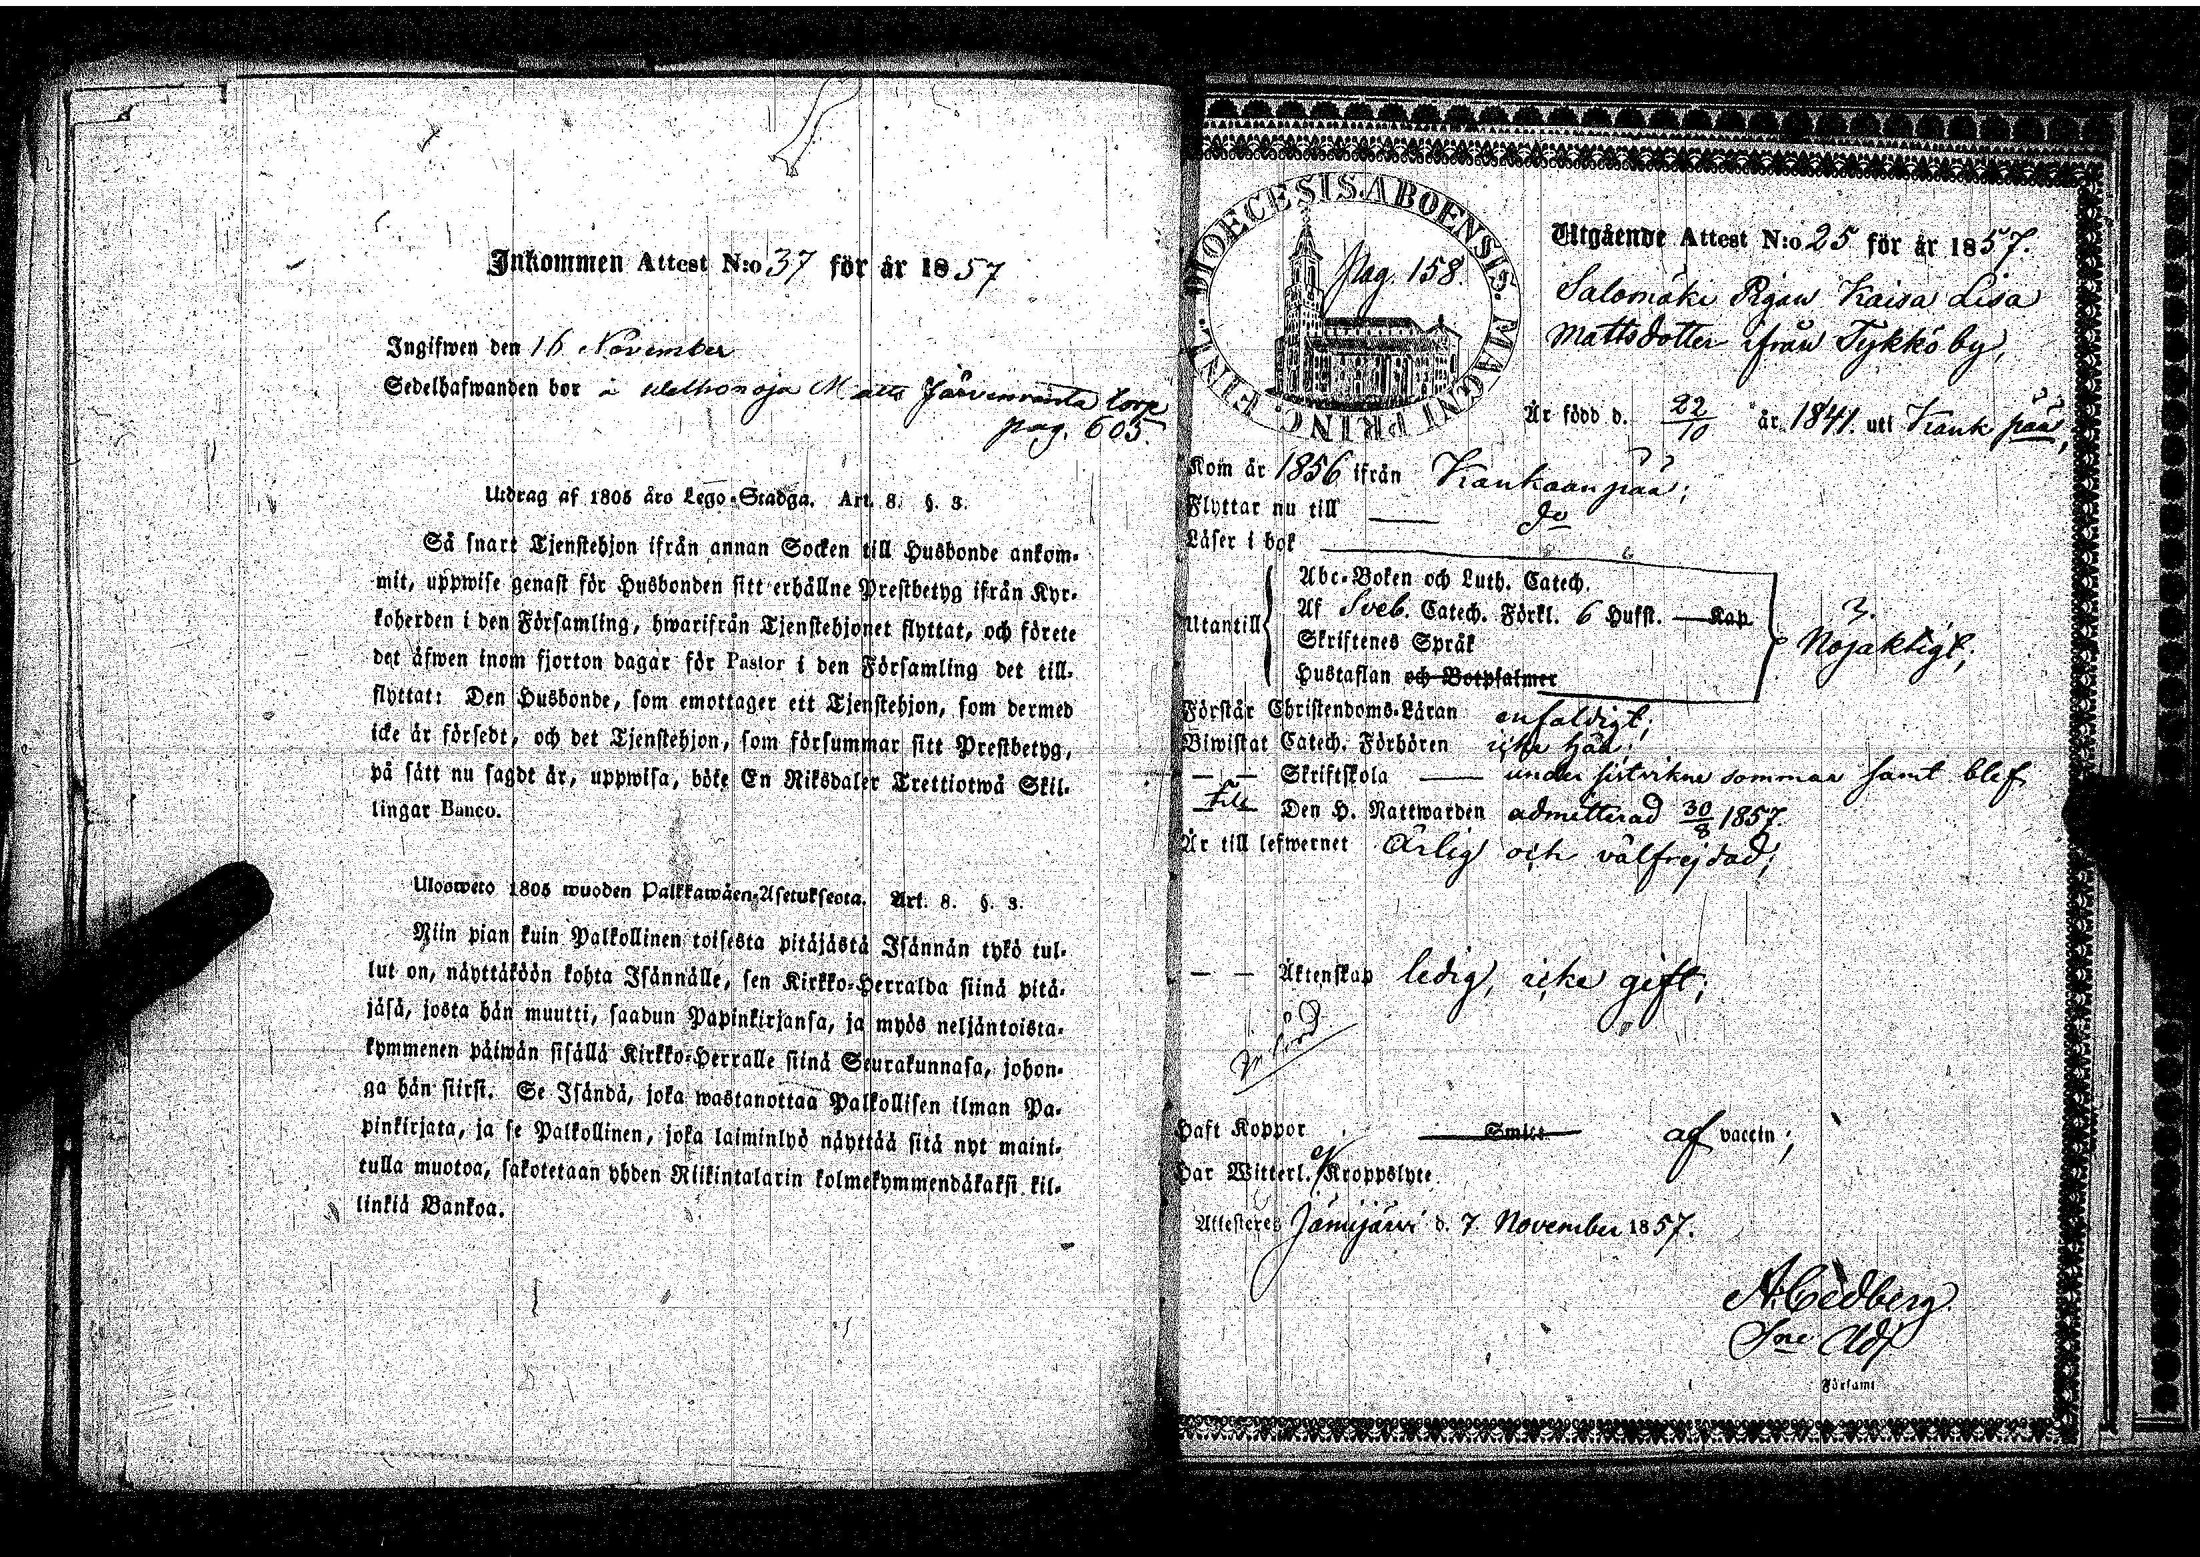 Inkommen Attest N:o 37 för år 1857
Ingifwen den 16 November
Sedelhafwanden bor å Matts Järvenranta torp
pag. 605.
Utdrag af 1805 åro Lego-Stadga. Art. 8. §. 3.
Så snart Tjenstehjon ifrån annan Socken till Husbonde ankom-
mit, uppwise genast för Husbonden sitt erhållne Prestbetyg ifrån Kyr-
koherden i den Församling, hwarifrån Tjenstehjonet flyttat, och förete
det äfwen inom fjorton dagar för Pastor i den Församling det till-
flyttat: Den Husbonde, som emottager ett Tjenstehjon, som dermed
icke är försedt, och det Tjenstehjon, som försummar sitt Prestbetyg,
på sätt nu sagdt är, uppwisa, böte En Riksdaler Trettiotwå Skil-
lingar Banco.
Ulosweto 1805 wuoden Palkkawäen-Asetuksesta. Art. 8. §. 3.
Niin pian kuin Palkollinen toisesta pitäjästä Isännän tykö tul-
lut on, näyttäköön kohta Isännälle, sen Kirkko-Herralda siinä pitä-
jäsä, josta hän muutti, saadun Papinkirjansa, ja myös neljäntoista-
kymmenen päiwän sisällä Kirkko-Herralle siinä Seurakunnasa, johon-
ga hän siirsi. Se Isändä, joka wastanottaa Palkollisen ilman Pa-
pinkirjata, ja se Palkollinen, joka laiminlyö näyttää sitä nyt maini-
tulla muotoa, sakotetaan yhden Riikintalarin kolmekymmendäkaksi kil-
linkiä Bankoa.
DIOECESIS. ABOENSIS. MAGNI PRINC. FINL.
pag. 158.
Utgående Attest N:o 25 för år 1857.
Salomäki Pigan Kaisa Lisa
Mattsdotter ifrån Tykkö by,
Är född d. 22/10 år 1841. uti Kankpää,
Kom år 1856 ifrån Kankaanpää;
Flyttar nu till — do
Läser i bok
Utantill
Abc-Boken och Luth. Catech.
Af Sveb. Catech. Förkl. 6 Hufst. — Kap
Skriftenes Språk
Hustaflan och Botpsalmer
3.
Nöjaktigt;
Förstår Christendoms-Läran enfaldigt;
Biwistat Catech. Förhören icke här;
— — Skriftskola — under sistvikne sommar samt blef
Till Den H. Nattwarden admitterad 30/8 1857.
Är till lefwernet Ärlig och välfrejdad;
— — Äktenskap ledig, icke gift;
Haft Koppor Smitt af vaccin;
Har Witterl. Kroppslyte
Attesteres Jämijärvi d. 7 November 1857.
A. Cedberg.
Församl